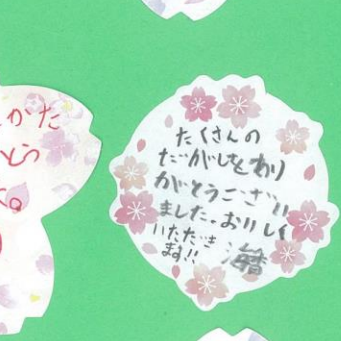 かた
たくさんの
だがしをあり
がとうござい
ました。おいしく
いただき
ます!!